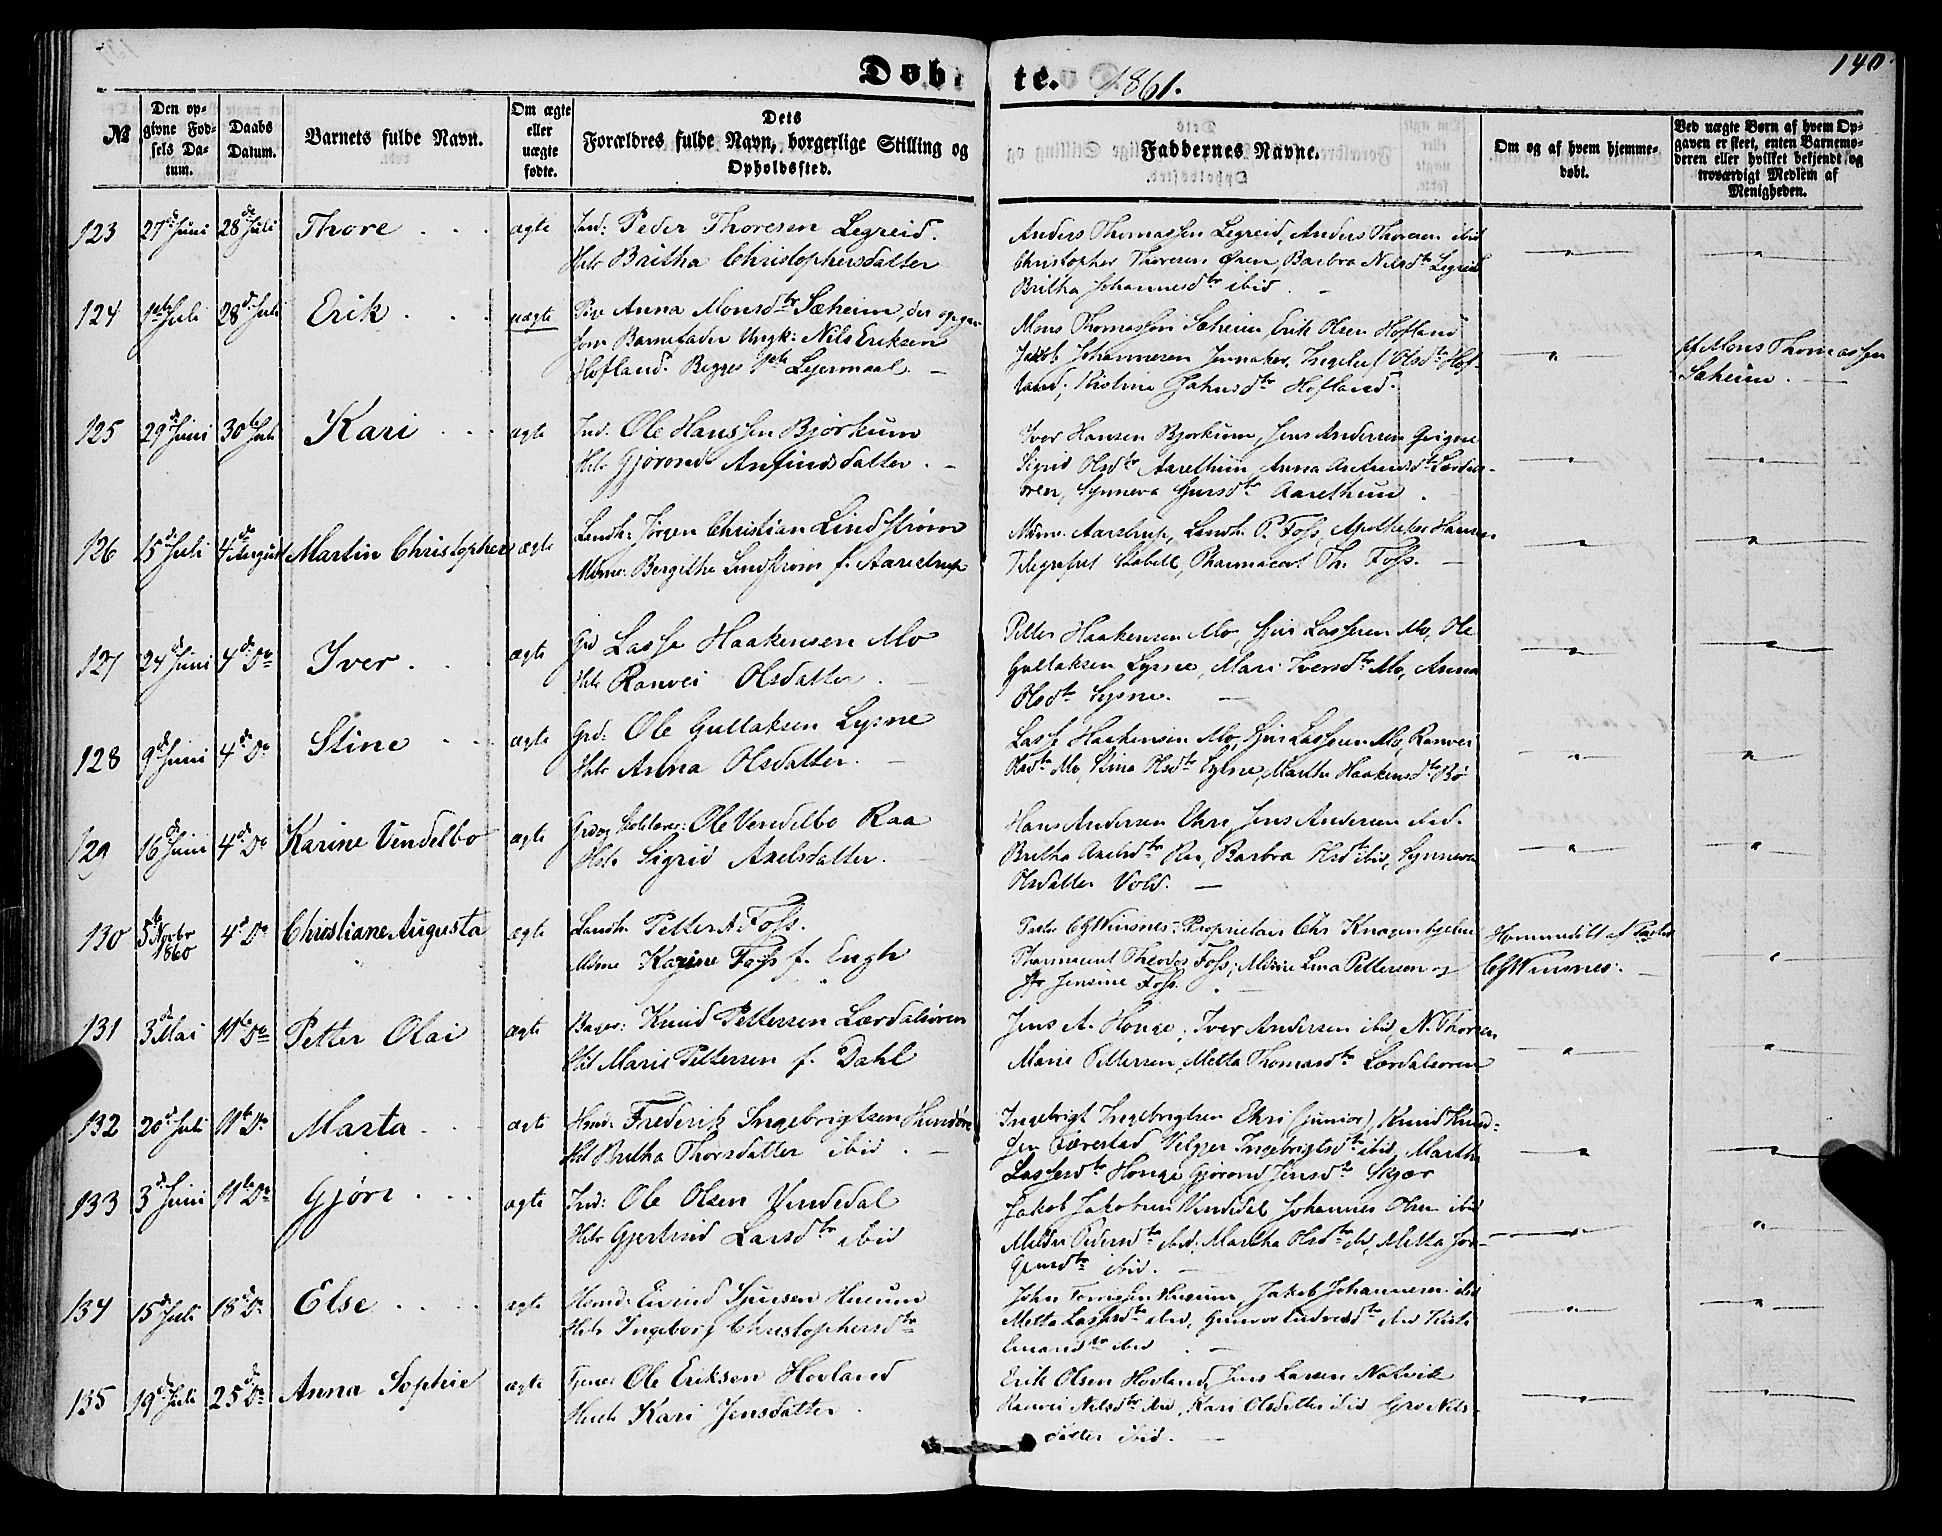 Døbte. 1861.
140.
№
Den opgivne Fødsels Datum.
Daabs Datum.
Barnets fulde Navn.
Om ægte eller uægte fødte.
Dets Forældres fulde Navn, borgerlige Stilling og Opholdssted.
Faddernes Navne.
Om og af hvem hjemmedøbt.
Ved uægte Børn af hvem Opgaven er skeet, enten Barnemoderen eller hvilket bekjendt og troværdigt Medlem af Menigheden.
123 27de Juni 28de Juli Thore ægte Ind: Peder Thoresen Legreid.
Hst: Britha Christophersdatter
Anders Thomassen Legreid, Anders Thoresen ibid
Christopher Thoresen Øren, Barbra Nilsdtr Legreid
Britha Johannesdtr ibid.
124 1ste Juli 28de Juli Erik uægte Pige Anna Monsdtr Sæheim, der opgav
som Barnefader Ungk: Nils Eriksen
Hofland. Begges 1ste Lejermaal.
Mons Thomassen Sæheim, Erik Olsen Hofland
Jakob Johannesen, Ingeleif Olsdtr Hof-
land, Kistine Hofland.
af Mons Thomassen
Sæheim.
125 29de Juni 30te Juli Kari ægte Ind: Ole Hanssen Bjørkum
Hst: Gjørond Anfindsdatter.
Iver Hansen Bjørkum, Jens Andersen Qvigne
Sigrid Olsdtr Aarethun, Anna Anfindsdtr Lærdals-
øren, Synneva Aarethun.
126 15de Juli 4de August Martin Christopher ægte Landh: Jørgen Christian Lindstrøm
Mdme: Bergithe Lindstrøm f. Aarestrup
Mdme. Aarestrup, Landh. P. Foss, Apotheker Hansen
Telegrafist Stabell, Pharmaceut Th. Foss.
127 24de Juni 4de Do Iver ægte Grd Lasse Haakensen Mo
Hst: Ranvei Olsdatter.
Petter Haakensen Mo, Lassesen Mo, Ole
Gullaksen Lysne, Mari Iversdtr Mo, Anna
Olsdtr Lysne.
128 9de Juni 4de Do Stine ægte Grd: Ole Gullaksen Lysne
Hst: Anna Olsdatter.
Lasse Haakensen Mo, Lassesen Mo, Ranvei
Olsdtr Mo, Olsdtr Lysne, Martha Haakensdtr Bø
129 16de Juni 4de Do Karine Vendelbo ægte Ole Vendelbo Raa
Hst: Sigrid Axelsdatter.
Hans Andersen Ehri, Jens Andersen ibid.
Britha Axelsdtr Raa, Barbra Olsdtr ibid, Synneva
Olsdatter Vold.
130 5te Novbr 1860 4de Do Christiane Augusta ægte Landh: Petter A Foss.
Mdme Karine Foss f. Engh
Pastor CG Winsnes, Proprietær Chr Knagenhjelm
Pharmaceut Theodor Foss, Mdme Lina Pettersen og
Jfr Jensine Foss.
Hjemmedøbt af Pastor
CG Winsnes.
131 3de Mai 11te Do Petter Olai ægte Bager: Knud Pettersen Lærdalsøren
Hst: Marie Pettersen f. Dahl
Jens A. Honge, Iver Andersen ibid, N. Thorsen
Marie Pettersen, Metta Thomasdtr Lærdalsøren
132 20de Juli 11te Do Marta ægte Hmd: Frederik Ingebrigtsen
Hst Britha Thorsdatter ibid.
Ingebrigt Ingebrigtsen Ehri (junior), Knud Knud-
sen Ingebrigtsdtr ibid, Martha
Lassesdtr Honge, Gjørond Jensdtr Skjær
133 3de Juni 11te Do Gjøri ægte Ind: Ole Olsen Vindedal
Hst: Gjertrud Larsdtr ibid
Jakob Jakobsen Vindedal Johannes Olsen ibid
Pedersdtr ibid, Martha Olsdtr ibid, Metta Jør-
gensdtr ibid.
134 15de Juli 18de Do Else ægte Hmd: Eivind Sjursen Husum
Hst: Ingeborg Christophersdtr
John Husum, Jakob Johannesen ibid
Metta Lassesdtr ibid, Gunvor ibid
ibid
135 19de Juli 25de Do Anna Sophie ægte Ole Eriksen Hovland
Kari Jensdatter.
Erik Olsen Hovland, Jens Larsen Natvik
Ranvei Nilsdtr ibid, Kari Olsdatter ibid Gro Nils-
datter ibid.